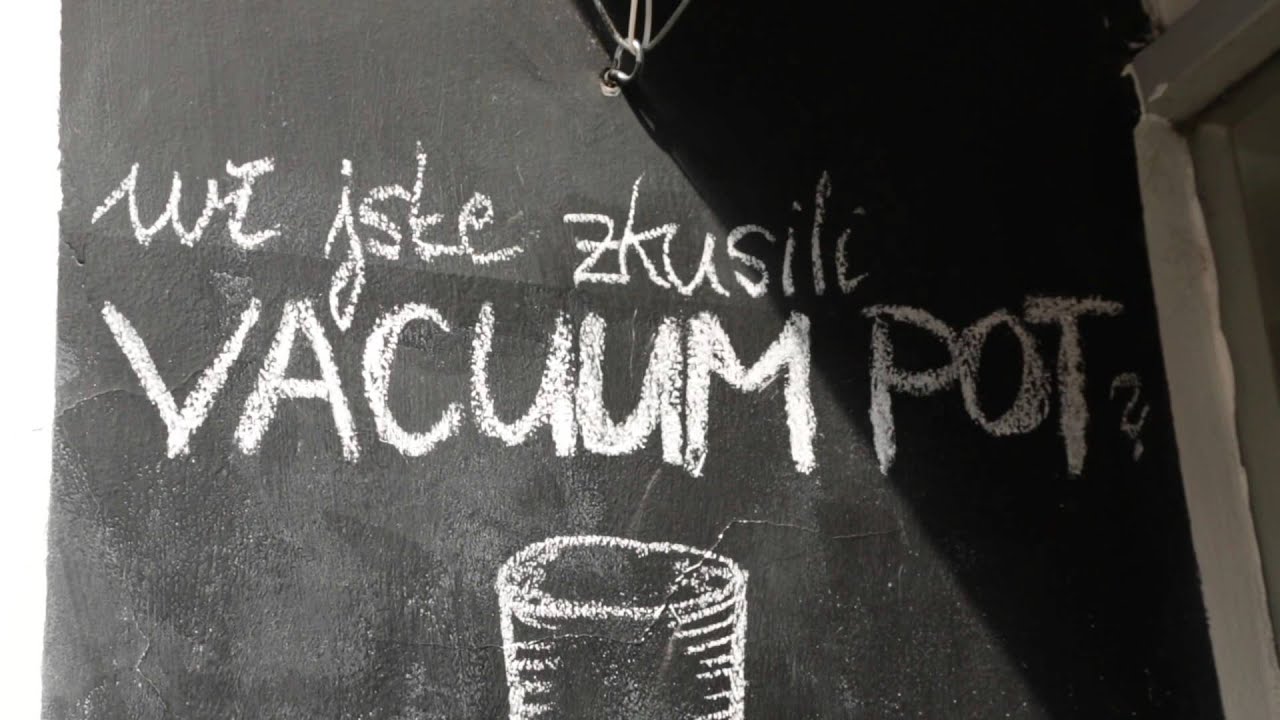 už jste zkusili
VACUUM POT?